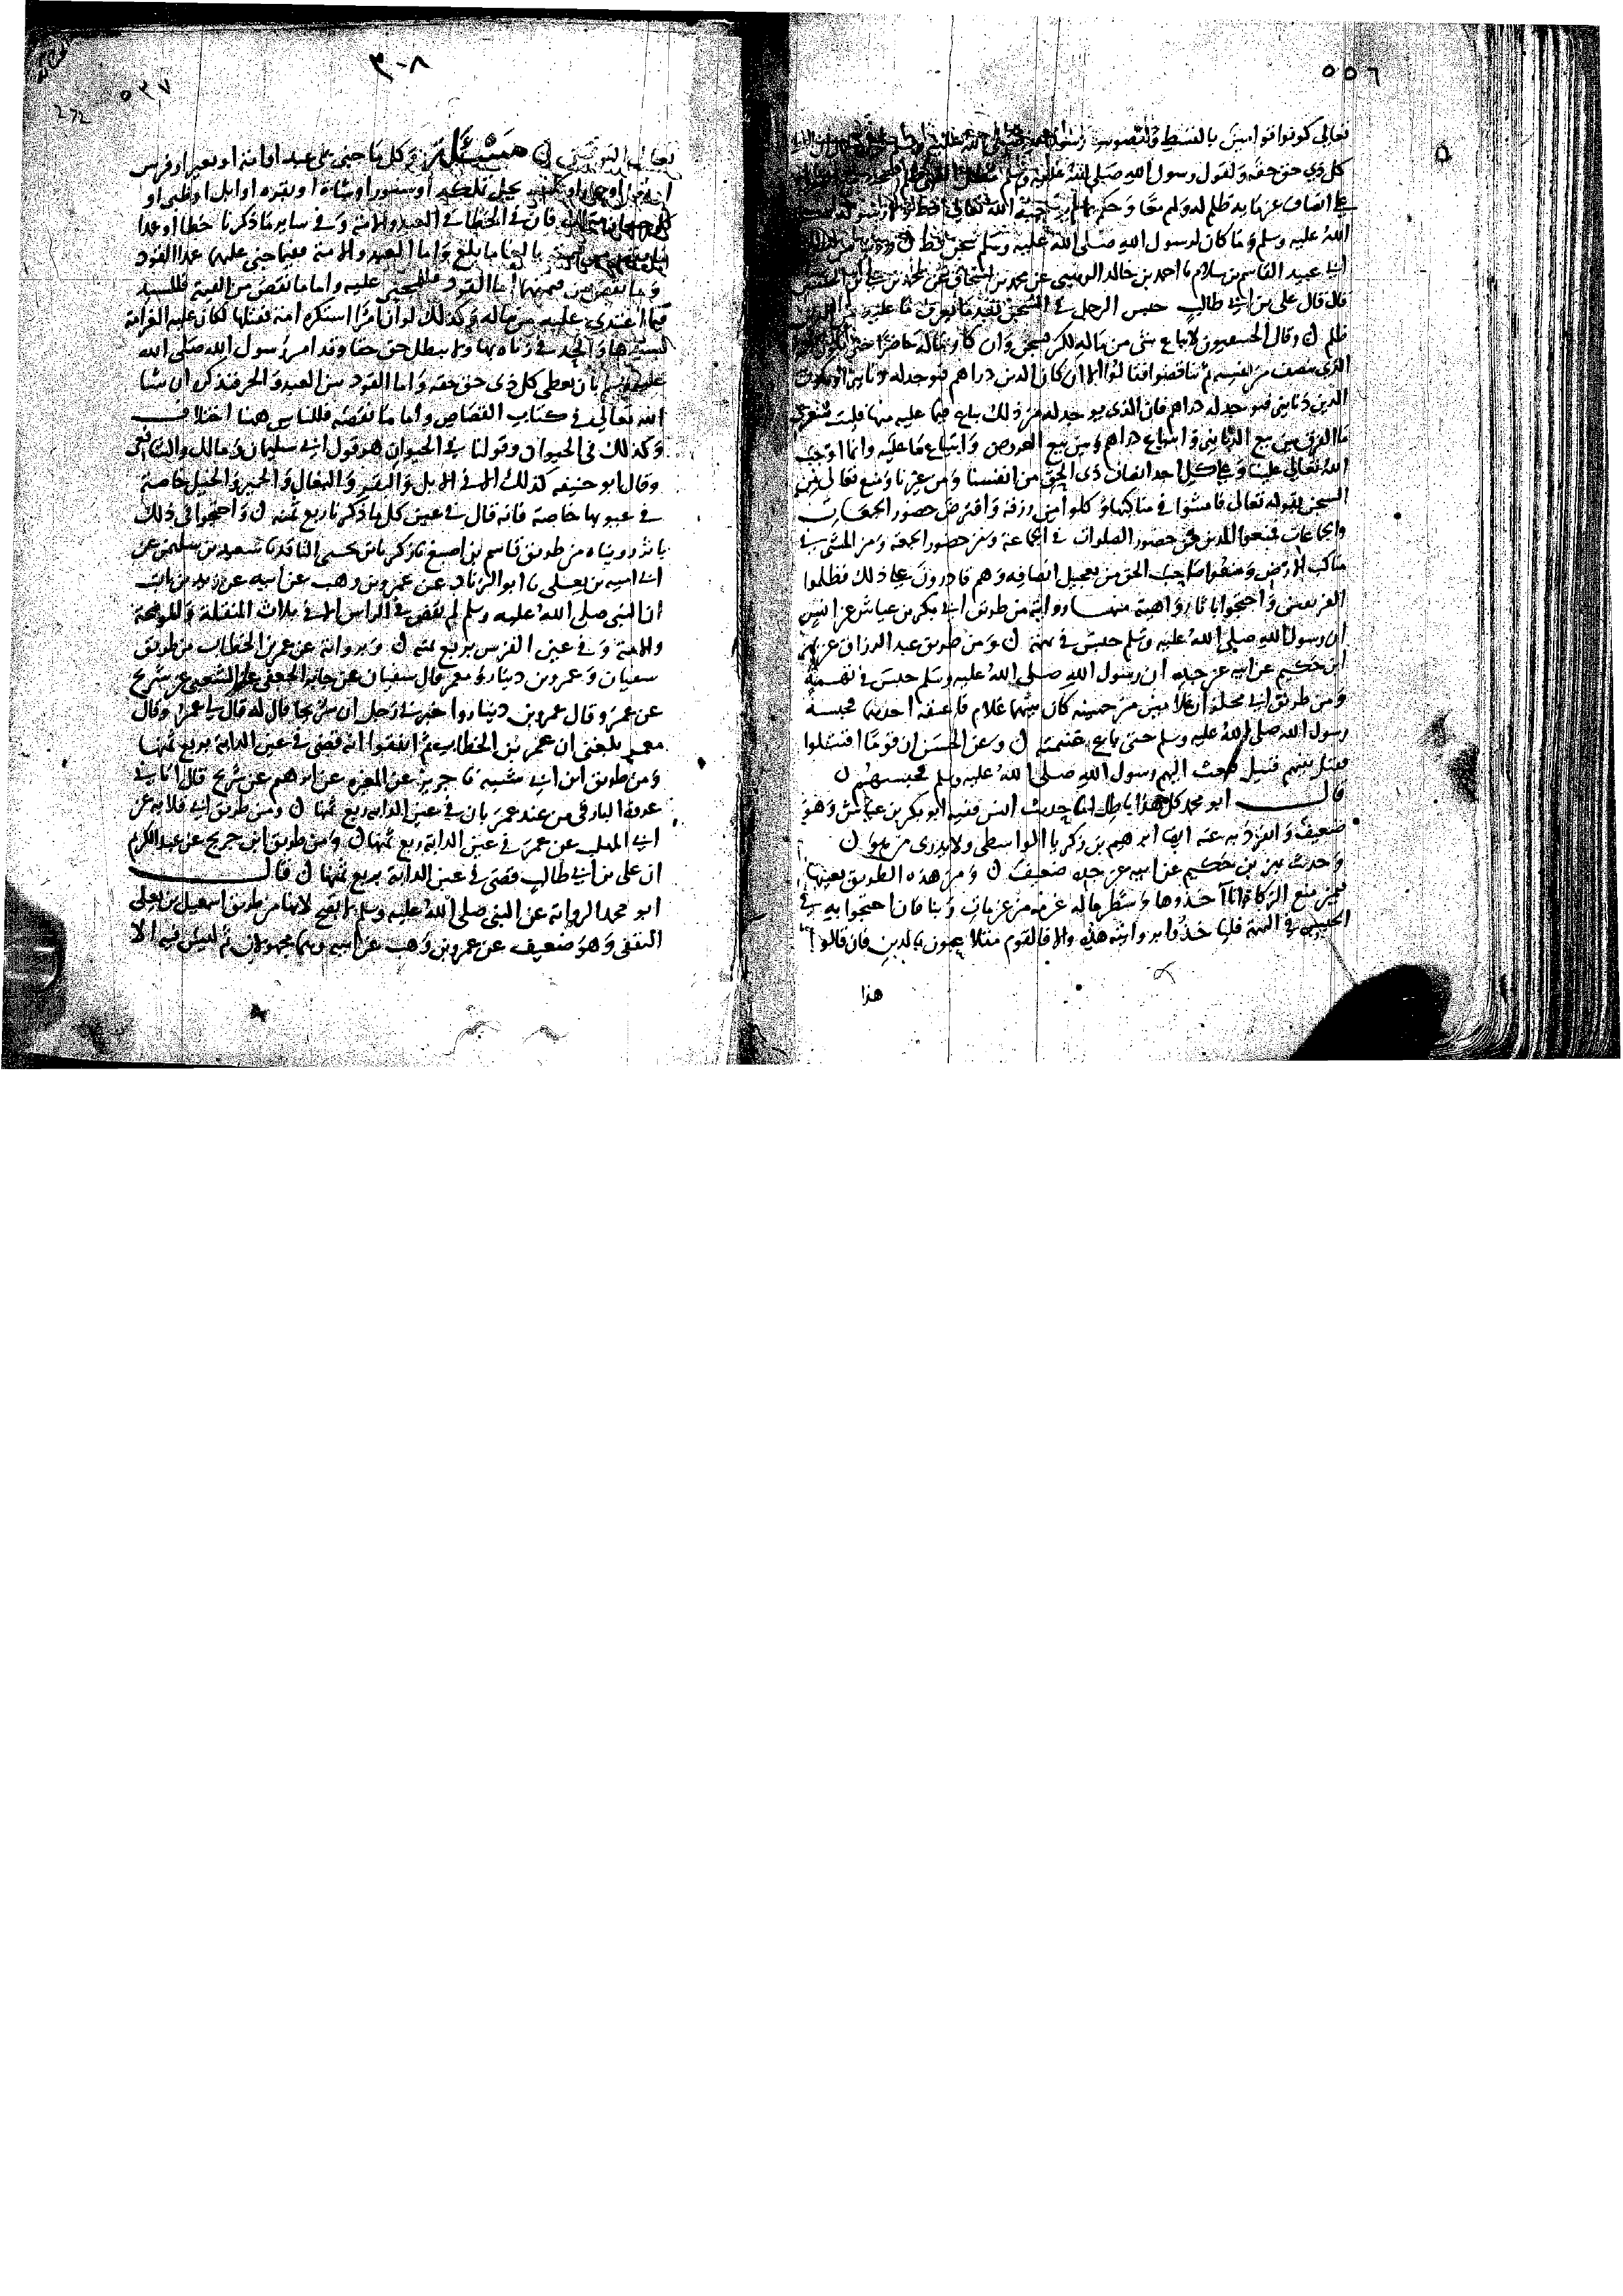 ٥٥٦
تعالى كونوا قوامين بالقسط ولنصوص رسول الله صلى الله عليه وسلم
كل ذي حق حقه ولقول رسول الله صلى الله عليه وسلم مطل الغني ظلم
على انصاف غريمه فظلم له ولم معا وحكم بما لم
الله عليه وسلم وما كان لرسول الله صلى الله عليه وسلم سجن قط ن روينا من طريق
ابي عبيد القاسم بن سلام نا احمد بن خالد الوهبي عن محمد بن اسحاق عن محمد بن علي بن الحسين
قال قال علي بن ابي طالب حبس الرجل في السجن بعد ما يعرف ما عليه من الدين
ظلم ن وقال الحنيفيون لا يباع شي من ماله لكن يسجن وان كان ماله حاضرا حتى يكون هو
الذي ينصف من نفسه ثم تناقضوا فقالوا الا ان كان الدين دراهم فوجد له دنانير او يكون
الدين دنانير فوجد له دراهم فان الذي يوجد له من ذلك يباع فيما عليه منها فليت شعري
ما الفرق بين بيع الدنانير وابتياع دراهم وبين بيع العروض وابتياع ما عليه وانما اوجب
الله تعالى علينا وعلى كل احد انصاف ذي الحق من انفسنا ومن غيرنا ومنع تعالى من
السجن بقوله تعالى فامشوا في مناكبها وكلوا من رزقه وافترض حضور الجمعات
والجماعات فمنعوا المدين من حضور الصلوات في الجماعة ومن حضور الجمعة ومن المشي في
مناكب الارض ومنعوا صاحب الحق من تعجيل انصافه وهم قادرون على ذلك فظلموا
الفريقين واحتجوا باثار واهية منها رواية من طريق ابي بكر بن عياش عن انس
ان رسول الله صلى الله عليه وسلم حبس في تهمة ن ومن طريق عبد الرزاق عن بهز
ابن حكيم عن ابيه عن جده ان رسول الله صلى الله عليه وسلم حبس في تهمة
ومن طريق ابي مجلز ان غلامين من جهينة كان بينهما غلام فاعتقه احدهما فحبسه
رسول الله صلى الله عليه وسلم حتى باع غنيمته ن وعن الحسن ان قوما اقتتلوا
فقتل بينهم قتيل فبعث اليهم رسول الله صلى الله عليه وسلم فحبسهم ن
قال ابو محمد كل هذا باطل اما حديث انس ففيه ابو بكر بن عياش وهو
ضعيف وانفرد به عنه ايضا ابراهيم بن زكريا الواسطي ولا يدرى من هو ن
وحديث بهز بن حكيم عن ابيه عن جده ضعيف ن ومن هذه الطريق بعينها
فيمن منع الزكاة انا آخذوها وشطر ماله عزمة من عزمات ربنا فان احتجوا به في
الحبس في التهمة فلياخذوا بروايته هذه والا فالقوم متلاعبون بالدين فان قالوا
هذا
٣٠٨
٥٣٧
272
مسئلة وكل ما جني على عبد او امة او بعير او فرس
يحل تملكه او سنور او شاة او بقرة او ايل او ظبي او
كل حيوان متملك فان في الخطا في العبد والامة وفي ساير ما ذكرنا خطا او عمدا
ما نقص من قيمته بالغا ما بلغ واما العبد والامة ففيما جني عليهما عمدا القود
وما نقص من قيمتهما اما القود فللمجني عليه واما ما نقص من القيمة فللسيد
فيما اعتدي عليه من ماله وكذلك لو ان امرا استكره امة فقتلها لكان عليه الغرامة
لسيدها والحد في زناه بها ولا يبطل حق حقا وقد امر رسول الله صلى الله
عليه وسلم بان يعطى كل ذي حق حقه واما القود بين العبد والحر فنذكره ان شا
الله تعالى في كتاب القصاص واما ما نقصه فللناس هنا اختلاف
وكذلك في الحيوان وقولنا في الحيوان هو قول ابي سليمان ومالك والشافعي
وقال ابو حنيفه كذلك الا في الابل والبقر والبغال والحمير والخيل خاصة
في عيونها خاصة فانه قال في عين كل ما ذكرنا ربع ثمنه ن واحتجوا في ذلك
باثر رويناه من طريق قاسم بن اصبغ نا زكريا بن يحيى الناقد نا سعيد بن سليمن عن
ابي امية بن يعلى نا ابو الزناد عن عمرو بن وهب عن ابيه عن زيد بن ثابت
ان النبي صلى الله عليه وسلم لم يقض في الراس الا في ثلاث المنقلة والموضحة
والامة وفي عين الفرس بربع ثمنه ن وبرواية عن عمر بن الخطاب من طريق
سفيان وعمرو بن دينار ومعمر قال سفيان عن جابر الجعفي عن الشعبي عن شريح
عن عمر وقال عمرو بن دينار واخبرني رجل ان شريحا قال له قال لي عمر وقال
معمر بلغني ان عمر بن الخطاب ثم اتفقوا انه قضى في عين الدابة بربع ثمنها
ومن طريق ابن ابي شيبه نا جرير عن المغيرة عن ابراهيم عن شريح قال اتاني
عروة البارقي من عند عمر بان في عين الدابه ربع ثمنها ن ومن طريق ابي قلابه عن
ابي المهلب عن عمر في عين الدابة ربع ثمنها ن ومن طريق ابن جريج عن عبد الكريم
ان علي بن ابي طالب قضى في عين الدابة بربع ثمنها ن قال
ابو محمد الرواية عن النبي صلى الله عليه وسلم لا تصح لانها من طريق اسمعيل بن يعلى
الثقفي وهو ضعيف عن عمرو بن وهب عن ابيه وهما مجهولان ثم ليس فيه الا